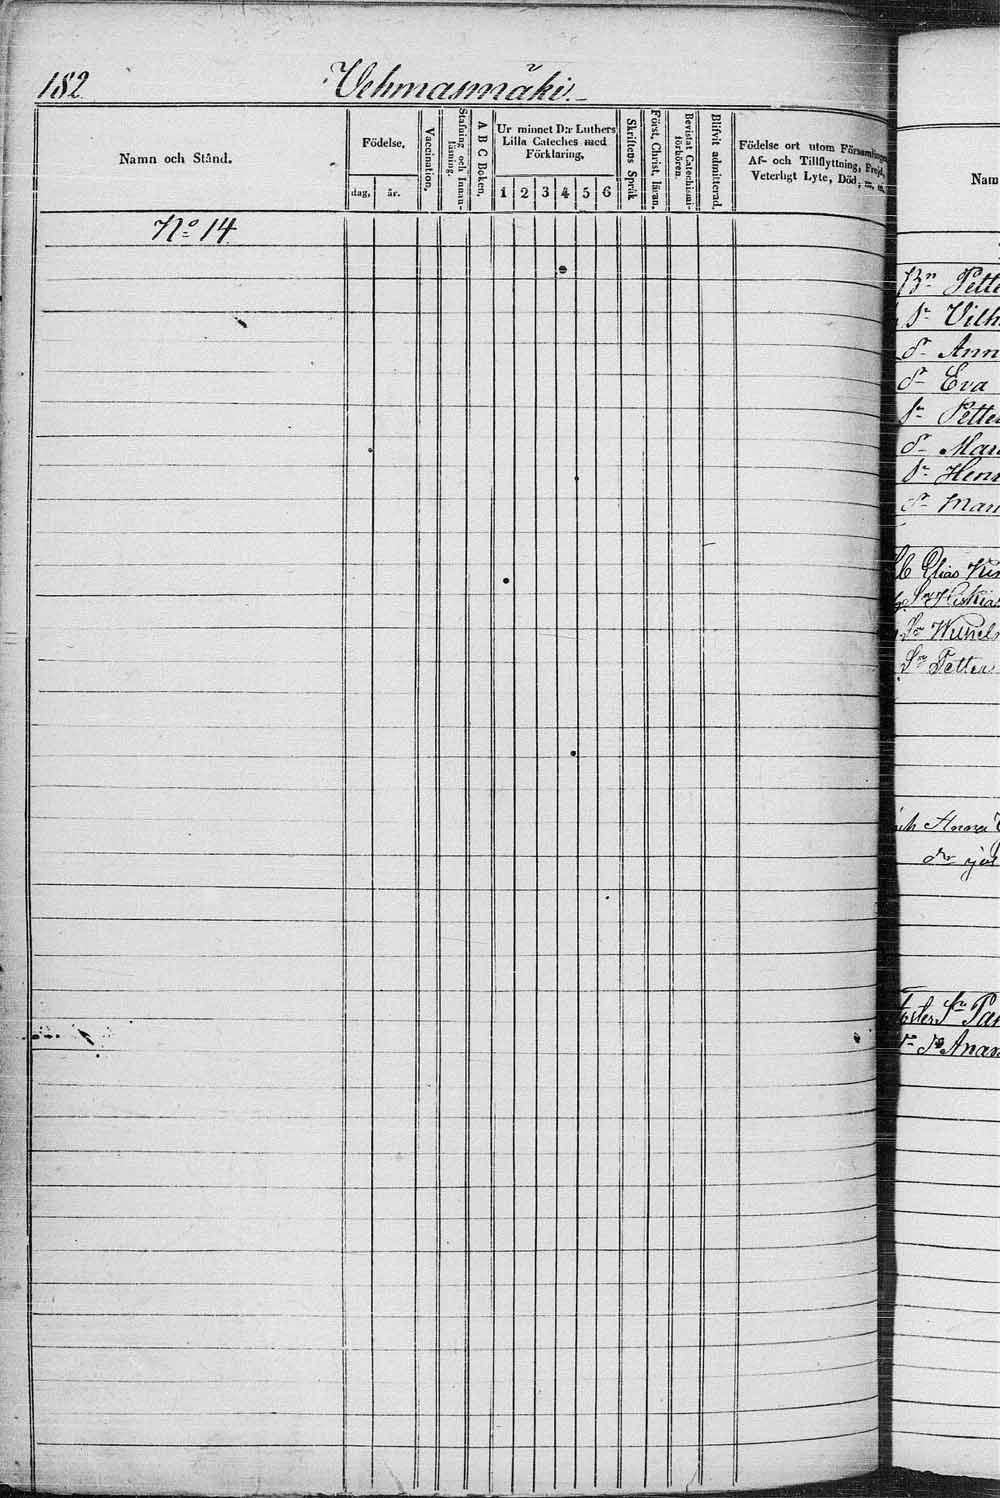 182
Vehmasmäki.
Namn och Stånd.
Födelse,
dag,
år.
Vaccination,
Stafning och Innan-
läsning.
A B C Boken,
Ur minnet D:r Luthers
Lilla Cateches med
Förklaring,
1 2 3 4 5 6
Skriftens Språk
Först. Christ. läran.
Bevistat Catechismi-
förhören.
Blifvit admitterad,
Födelse ort utom Församlingen
Af- och Tillflyttning, Frejd,
Veterligt Lyte, Död, m. m.
No 14
Nam
Bn Pette
Sr Vilh
dr Ann
dr Eva
Sn Petter
dr Mari
Sr Henr
dr Mari
Elias
Sn
Sn
Sn Petter
Anna
dr
foster Sn